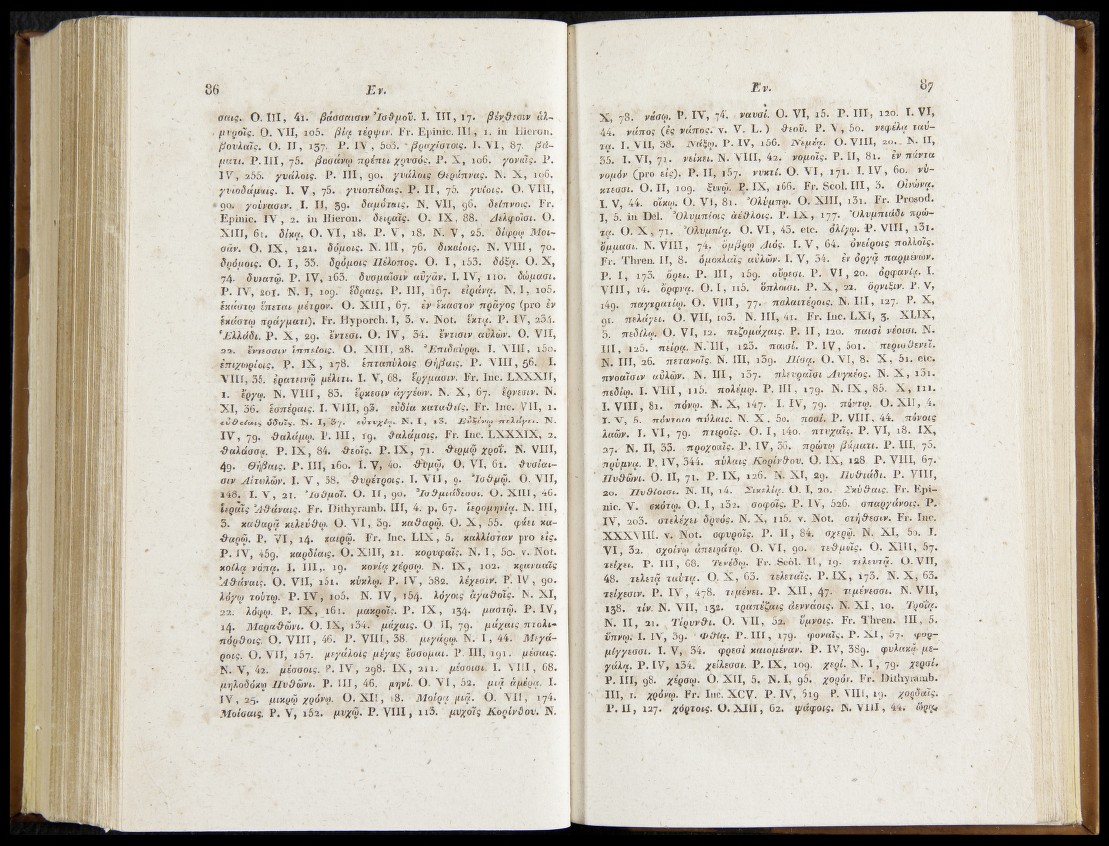 86 Εν.
σαις. O. III, 41. βάσσαισιν Ἰσθμοῦ. I. III, 17. βένθεσιν ἁλ-
μυροῖς. O. VII, 105. βίᾳ τέρψιν. Fr. Epinic. III, 1. in Hieron.
βουλαῖς. O. II, 137. P. IV, 503. βροχίστοις. I. VI, 87. βά-
ματι. P. III, 75. βασάνῳ πρέπει χρυσός. P. X, 106. γοναῖς. P.
IV, 255. γυάλοις. P. III, 90. γυάλοις Θεράπνας. N. X, 106.
γυιοδάμαις. I. V, 75. γυιοπέδαις. P. II, 75. γυίοις. O. VIII,
90. γούνασιν. I. II, 39. δαμόταις. N. VII, 96. δείπνοις. Fr.
Epinic. IV, 2. in Hieron. δειραῖς. O. IX, 88. Δελφοῖσι. O.
XIII, 61. δίκᾳ. O. VI, 18. P. V, 18. N. V, 25. δίφρῳ Μοι-
σᾶν. O. IX, 121. δόμοις. N. III, 76. δικαίοις. N. VIII, 70.
δρόμοις. O. I, 33. δρόμοις Πέλοπος. O. I, 153. δόξᾳ. O. X,
74. δυνατῷ. P. IV, 163. δυσμαῖσιν αὐγᾶν. I. IV, 110. δώμασι.
P. IV, 201. N. I, 109. ἕδραις. P. III, 167. εἰράνᾳ. N. I, 105.
ἑκάστῳ ἕπεται μέτρον. O. XIII, 67. ἐν ἕκαστον πρᾶγος (pro ἐν
ἑκάστῳ πράγματι). Fr. Hyporch. I, 3. v. Not. ἕκτᾳ. P. IV, 234.
Ἑλλάδι. P. X, 29. ἔντεσι. O. IV, 34. ἔντεσιν αὐλῶν. O. VII,
22. ἔντεσσιν ἱππείοις. O. XIII, 28. Ἐπιδαύρῳ. I. VIII, 150.
ἐπιχωρίοις. P. IX, 178. ἑπταπύλοις Θήβαις. P. VIII, 56. I.
VIII, 35. ἐρατεινῷ μέλιτι. I. V, 68. ἔργμασιν. Fr. Inc. LXXXII,
1. ἔργῳ. N. VIII, 83. ἕρκεσιν ἀγγέων. N. X, 67. ἔρνεσιν. N.
XI, 36. ἑσπέραις. I. VIII, 93. εὐδίᾳ καταθείς. Fr. Inc. VII, 1.
N. I, 13. N.
IV, 79. θαλάμῳ. P. III, 19. θαλάμοις. Fr. Inc. LXXXIX, 2.
θαλάσσᾳ. P. IX, 84. θεοῖς. P. IX, 71. θερμῷ χροΐ. N. VIII,
49. Θήβαις. P. III, 160. I. V, 40. θυμῷ. O. VI, 61. θυσίαι-
σιν Αἰτωλῶν. I. V, 38. θυρέτροις. I. VII, 9. Ἰσθμῷ. O. VII,
148. I. V, 21. Ἰσθμοῖ. O. II, 90. Ἰσθμιάδεσσι. O. XIII, 46.
ἱεραῖς Ἀθάναις. Fr. Dithyramb. III, 4. p. 67. ἱερομηνίᾳ. N. III,
3. καθαρᾷ κελεύθῳ. O. VI, 39. καθαρῷ. O. X, 55. φάει κα-
θαρῷ. P. VI, 14. καιρῷ. Fr. Inc. LIX, 5. κάλλιστον pro εἰς.
P. IV, 459. καρδίαις. O. XIII, 21. κορυφαῖς. N. I, 50. v. Not.
κοίλᾳ νάπᾳ. I. III, 19. κονίᾳ χέρσῳ. N. IX, 102. κρανααῖς
Ἀθάναις. O. VII, 151. κύκλῳ. P. IV, 382. λέχεσιν. P. IV, 90.
λόγῳ τούτῳ. P. IV, 105. N. IV, 154. λόγοις ἀγαθοῖς. N. XI,
22. λόφῳ. P. IX, 161. μακροῖς. P. IX, 134. μαστῷ. P. IV,
14. Μαραθῶνι. O. IX, 134. μάχαις. O. II, 79. μάχαις πτολι-
πόρθοις. O. VIII, 46. P. VIII, 38. μεγάρῳ. N. I, 44. Μεγά-
ροις. O. VII, 157. μεγάλοις μέγας ἔσσομαι. P. III, 191. μέσαις.
N. V, 42. μέσσοις. P. IV, 298. IX, 211. μέσοισι. I. VIII, 68.
μηλοδόκῳ Πυθῶνι. P. III, 46. μηνί. O. VI, 52. μιᾷ ἁμέρᾳ. I.
IV, 25. μικρῷ χρόνῳ. O. XII, 18. Μοίρᾳ μιᾷ. O. VII, 174.
Μοίσαις. P. V, 152. μυχῷ. P. VIII, 113. μυχοῖς Κορίνθου. N.
Εν. 87
X, 78. νάσῳ. P. IV, 74. ναυσί. O. VI, 15. P. III, 120. I. VI,
44. νάπος (ἐς νάπος. v. V. L.) θεοῦ. P. V, 50. νεφέλᾳ ταύ-
τᾳ. I. VII, 38. Νάξῳ. P. IV, 156. Νεμέᾳ. O. VIII, 20. N. II,
35. I. VI, 71. νείκει. N. VIII, 42. νομοῖς. P. II, 81. ἐν πάντα
νομόν (pro εἰς). P. II, 157. νυκτί. O. VI, 171. I. IV, 60. νύ-
κτεσσι. O. II, 109. ξυνῷ. P. IX, 166. Fr. Scol. III, 3. Οἰνώνᾳ.
I. V, 44. οἴκῳ. O. VI, 81. Ὀλύμπῳ. O. XIII, 131. Fr. Prosod.
I, 5. in Del. Ὀλυμπίοις ἀέθλοις. P. IX, 177. Ὀλυμπιάδι πρώ-
τᾳ. O. X, 71. Ὀλυμπίᾳ. O. VI, 43. etc. ὀλίγῳ. P. VIII, 131.
ὄμμασι. N. VIII, 74. ὄμβρῳ Διός. I. V, 64. ὀνείροις πολλοῖς.
Fr. Thren. II, 8. ὁμοκλαῖς αὐλῶν. I. V, 34. ἐν ὀργᾷ παρμένων.
P. I, 173. ὄρει. P. III, 159. οὔρεσι. P. VI, 20. ὀρφανίᾳ. I.
VIII, 14. ὄρφνᾳ. O. I, 115. ὅπλοισι. P. X, 22. ὄρνιξιν. P. V,
149. παγκρατίῳ. O. VIII, 77. παλαιτέροις. N. III, 127. P. X,
91. πελάγει. O. VII, 103. N. III, 41. Fr. Inc. LXI, 3. XLIX,
5. πεδίλῳ. O. VI, 12. πεζομάχαις. P. II, 120. παισὶ νέοισι. N.
III, 125. πείρᾳ. N. III, 123. παισί. P. IV, 501. περισθενεῖ.
N. III, 26. πετανοῖς. N. III, 139. Πίσᾳ. O. VI, 8. X, 51. etc.
πνοαῖσιν αὐλῶν. N. III, 137. πλευραῖσι Λυγκέος. N. X, 131.
πεδίῳ. I. VIII, 115. πολέμῳ. P. III, 179. N. IX, 85. X, 111.
I. VIII, 81. πόνῳ. N. X, 147. I. IV, 79. πόντῳ. O. XII, 4.
I. V, 5. πόντοιο πύλαις. N. X, 50. ποσί. P. VIII, 44. πόνοις
λαῶν. I. VI, 79. πτεροῖς. O. I, 140. πτυχαῖς. P. VI, 18. IX,
27. N. II, 33. προχοαῖς. P. IV, 36. πρώτῳ βάματι. P. III, 75.
πρύμνᾳ. P. IV, 344. πύλαις Κορίνθου. O. IX, 128. P. VIII, 67.
Πυθῶνι. O. II, 71. P. IX, 126. N. XI, 29. Πυθιάδι. P. VIII,
20. Πυθίοισι. N. II, 14. Σικελίᾳ. O. I, 20. Σκύθαις. Fr. Epi-
nic. V. σκότῳ. O. I, 132. σοφοῖς. P. IV, 526. σπαργάνοις. P.
IV, 203. στελέχει δρυός. N. X, 115. v. Not. στήθεσιν. Fr. Inc.
XXXVIII. v. Not. σφυροῖς. P. II, 84. σχερῷ. N. XI, 50. I.
VI, 32. σχοίνῳ ἀπειράτῳ. O. VI, 90. τεθμοῖς. O. XIII, 57.
τείχει. P. III, 68. Τενέδῳ. Fr. Scol. II, 19. τελευτᾷ. O. VII,
48. τελετᾷ ταύτᾳ. O. X, 63. τελεταῖς. P. IX, 173. N. X, 63.
τείχεσιν. P. IV, 478. τεμένει. P. XII, 47. τεμένεσσι. N. VII,
138. τίν. N. VII, 132. τραπέζαις ἀεννάοις. N. XI, 10. Τροΐᾳ.
N. II, 21. Τίρυνθι. O. VII, 52. ὕμνοις. Fr. Thren. III, 5.
ὕπνῳ. I. IV, 39. Φθίᾳ. P. III, 179. φοναῖς. P. XI, 57. φορ-
μίγγεσσι. I. V, 34. φρεσὶ καιομέναν. P. IV, 389. φυλακᾷ με-
γάλᾳ. P. IV, 134. χείλεσσι. P. IX, 109. χερί. N. I, 79. χερσί.
P. III, 98. χέρσῳ. O. XII, 5. N. I, 95. χορόν. Fr. Dithyramb.
III, 1. χρόνῳ. Fr. Inc. XCV. P. IV, 519. P. VIII, 19. χορδαῖς.
P. II, 127. χόρτοις. O. XIII, 62. ψάφοις. N. VIII, 44. ὥρᾳ.